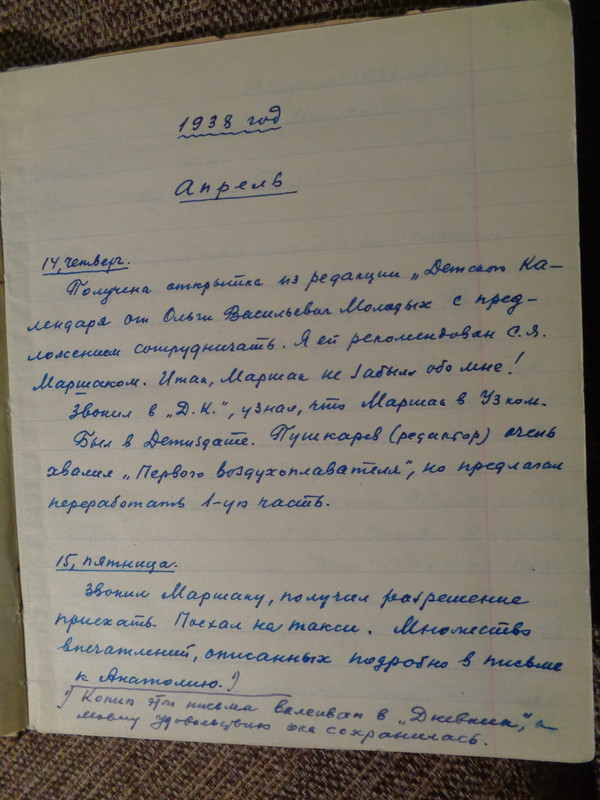 1938 год
Апрель
14, четверг.
Получена открытка из редакции „Детского Ка-
лендаря от Ольги Васильевич Молодых с пред-
ложением сотрудничать. Я ей рекомендован С.Я.
Маршаком. Итак, Маршак не забыл обо мне!
Звонил в „Д.К.", узнал, что Маршак в Узком.
Был в Детиздате. Пушкарев (редактор) очень
хвалил „Первого воздухоплавателя", но предлагал
переработать 1-ую часть.
15, пятница.
Звонил Маршаку, получил разрешение
приехать. Поехал на такси. Множество
впечатлений, описанных подробно в письме
к Анатолию.¹)
¹) Копия этого письма вклеивал в „Дневник", к
моему удовольствию она сохранилась.